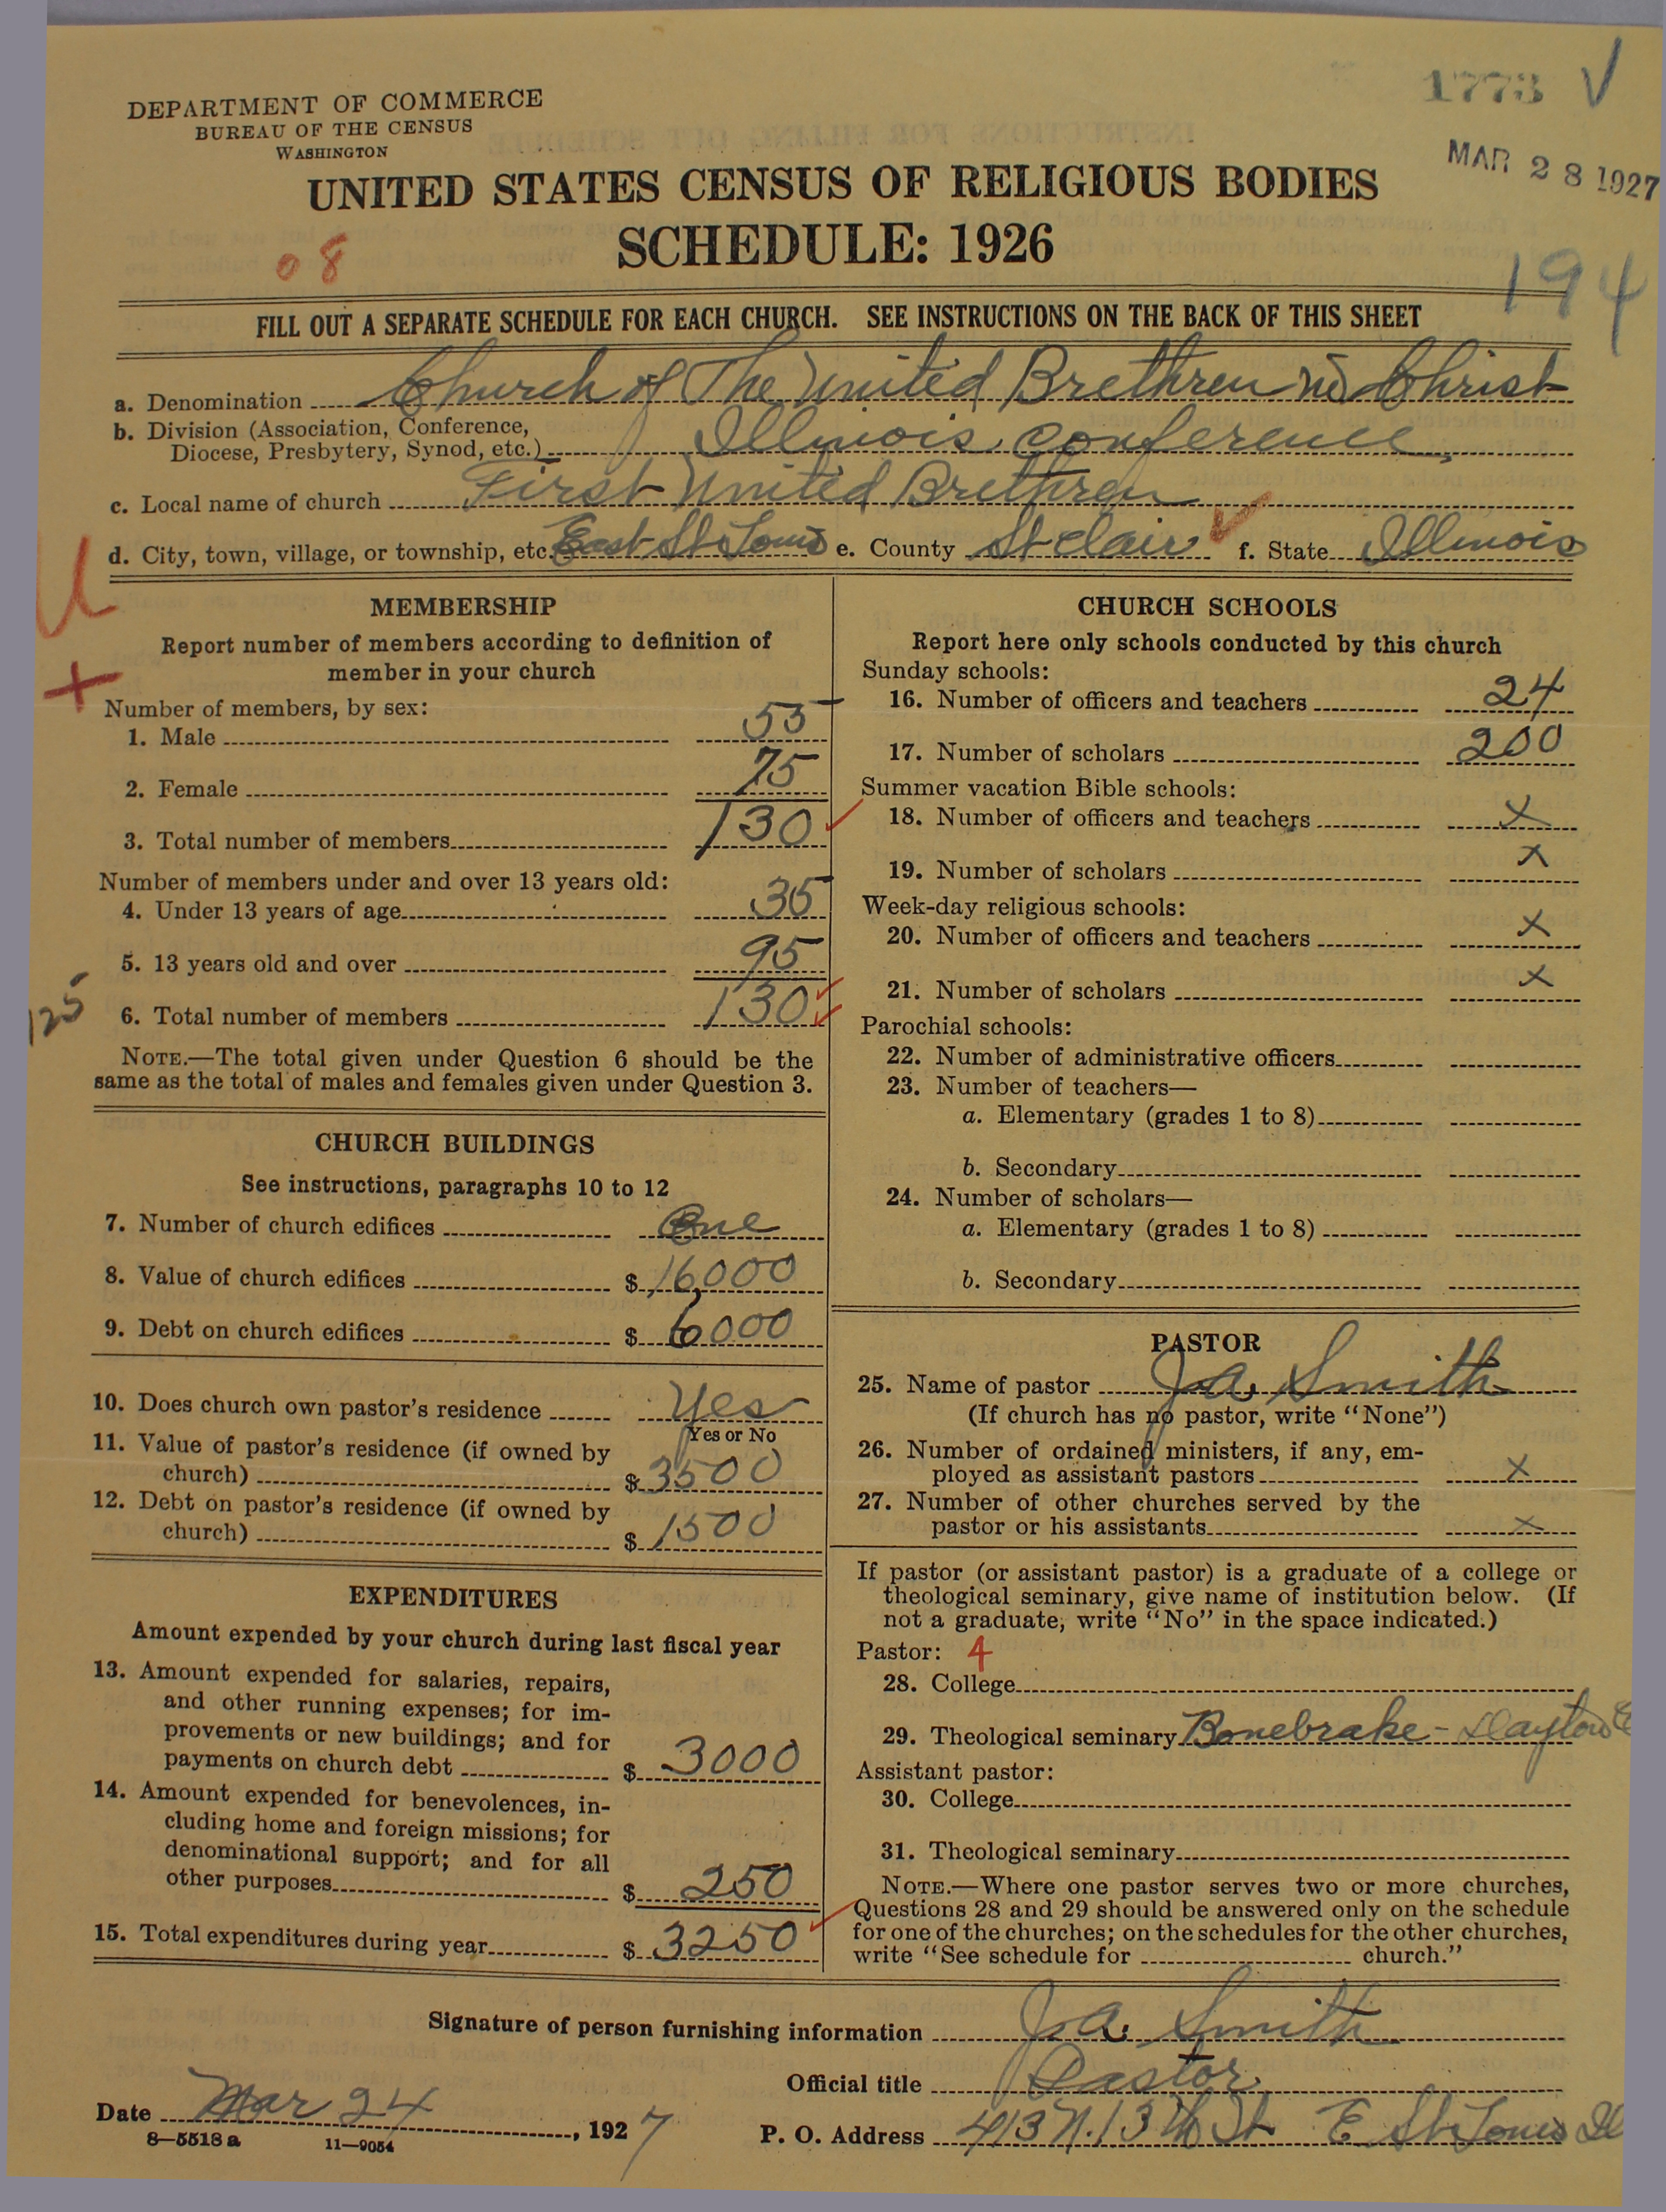 1773 √
MAR 28 1927
194
DEPARTMENT OF COMMERCE
BUREAU OF THE CENSUS
WASHINGTON
UNITED STATES CENSUS OF RELIGIOUS BODIES
SCHEDULE: 1926
08
FILL OUT A SEPARATE SCHEDULE FOR EACH CHURCH. SEE INSTRUCTIONS ON THE BACK OF THIS SHEET
a. Denomination Church of The United Brethren in Christ
b. Division (Association, Conference,
Diocese, Presbytery, Synod, etc.) Illinois Conference
c. Local name of church First United Brethren
d. City, town, village, or township, etc. East St Louis e. County St Clair f. State Illinois
MEMBERSHIP
Report number of members according to definition of
member in your church
Number of members, by sex:
1. Male 55
2. Female 75
3. Total number of members 130
Number of members under and over 13 years old:
4. Under 13 years of age 35
5. 13 years old and over 95
125
6. Total number of members 130
NOTE.—The total given under Question 6 should be the
same as the total of males and females given under Question 3.
CHURCH BUILDINGS
See instructions, paragraphs 10 to 12
7. Number of church edifices One
8. Value of church edifices $ 16,000
9. Debt on church edifices $ 6000
10. Does church own pastor's residence Yes
Yes or No
11. Value of pastor's residence (if owned by
church) $ 3500
12. Debt on pastor's residence (if owned by
church) $ 1500
EXPENDITURES
Amount expended by your church during last fiscal year
13. Amount expended for salaries, repairs,
and other running expenses; for im-
provements or new buildings; and for
payments on church debt $ 3000
14. Amount expended for benevolences, in-
cluding home and foreign missions; for
denominational support; and for all
other purposes $ 250
15. Total expenditures during year $ 3250
CHURCH SCHOOLS
Report here only schools conducted by this church
Sunday schools:
16. Number of officers and teachers 24
17. Number of scholars 200
Summer vacation Bible schools:
18. Number of officers and teachers x
19. Number of scholars x
Week-day religious schools:
20. Number of officers and teachers x
21. Number of scholars x
Parochial schools:
22. Number of administrative officers
23. Number of teachers—
a. Elementary (grades 1 to 8)
b. Secondary
24. Number of scholars—
a. Elementary (grades 1 to 8)
b. Secondary
PASTOR
25. Name of pastor J.A. Smith
(If church has no pastor, write "None")
26. Number of ordained ministers, if any, em-
ployed as assistant pastors x
27. Number of other churches served by the
pastor or his assistants x
If pastor (or assistant pastor) is a graduate of a college or
theological seminary, give name of institution below. (If
not a graduate, write "No" in the space indicated.)
Pastor: 4
28. College
29. Theological seminary Bonebrake - Dayton
Assistant pastor:
30. College
31. Theological seminary
NOTE.—Where one pastor serves two or more churches,
Questions 28 and 29 should be answered only on the schedule
for one of the churches; on the schedules for the other churches,
write "See schedule for church."
Signature of person furnishing information J.A. Smith
Official title Pastor
Date Mar 24, 1927
P. O. Address 413 N. 13th St E St Louis Ill
8—5518 a 11—9054